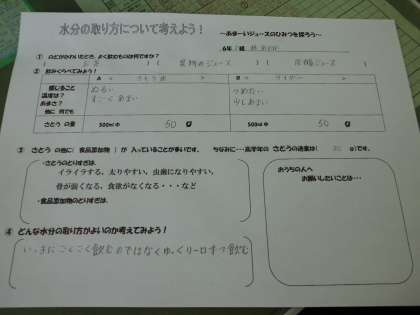 水分の取り方について考えよう！
～あま～いジュースのひみつを探ろう～
6年 組
① のどがかわいたとき、よく飲むものは何ですか？
② 飲みくらべてみよう！
A さとう水
B サイダー
感じること
温度は？
あまさ？
他に 何でも
ぬるい
すごくあまい
つめたい
少しあまい
さとうの量 500ml中 50 g 500ml中 50 g
③ さとうの他に 食品添加物 が 入っていることが多いです。 ちなみに…高学年の さとうの適量は( )gです。
・さとうのとりすぎは、
イライラする、太りやすい、虫歯になりやすい、
骨が弱くなる、食欲がなくなる・・・など
・食品添加物のとりすぎは、
おうちの人へ
お願いしたいことは…
④ どんな水分の取り方がよいのか考えてみよう！
いっきにごくごく飲むのではなくゆっくり一口ずつ飲む